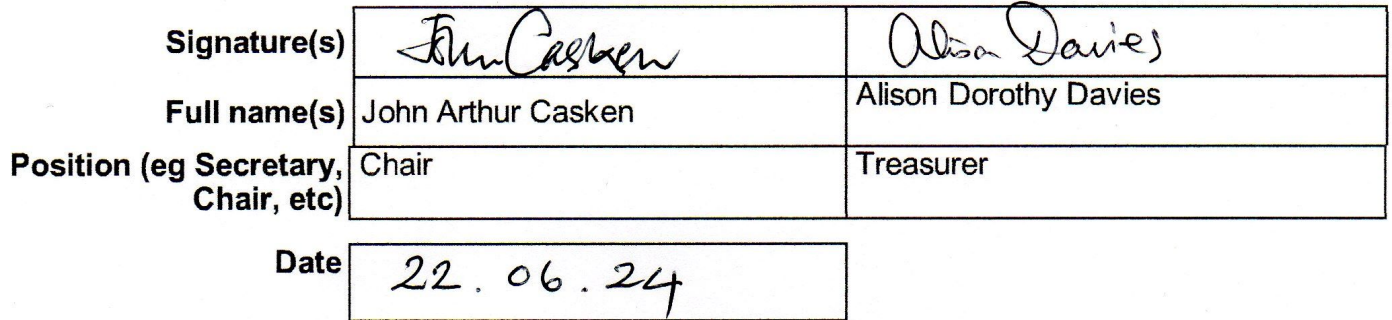 Signature(s) John Casken Alison Davies
Full name(s) John Arthur Casken Alison Dorothy Davies
Position (eg Secretary, Chair Treasurer
Chair, etc)
Date 22.06.24